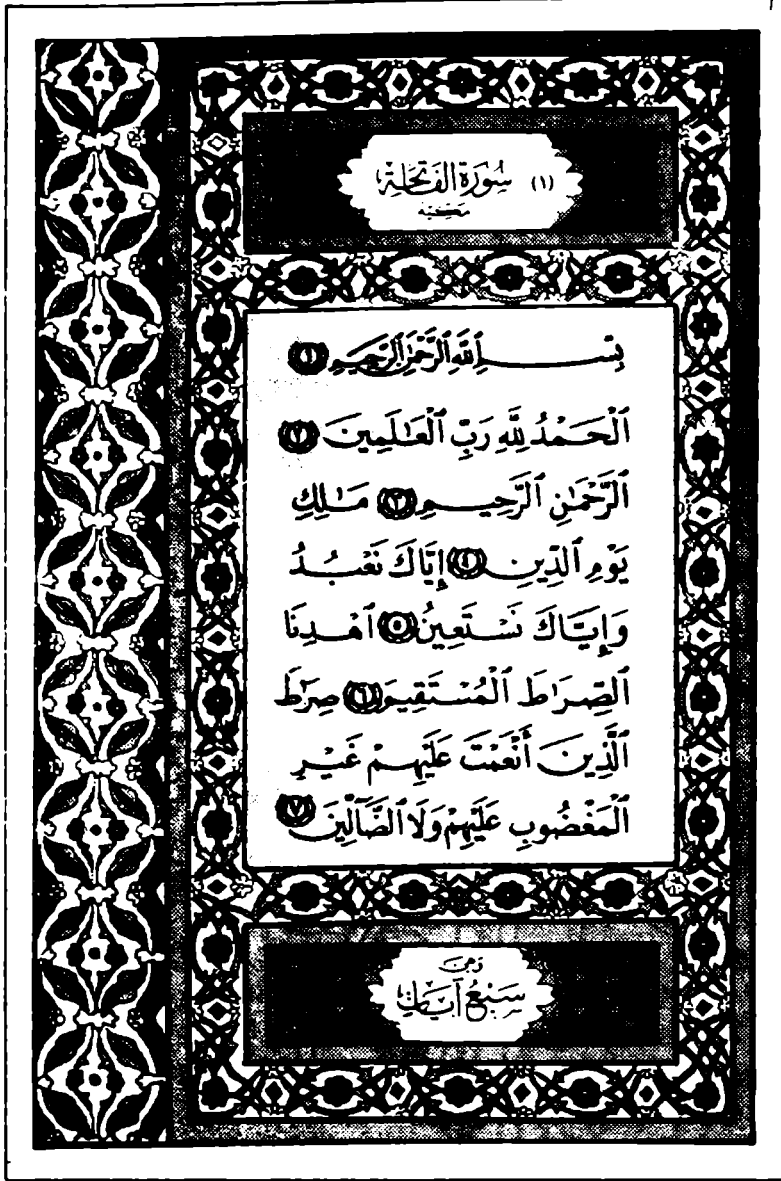 (١) سُورَةُ الفَاتِحَةِ
مَكِّيَّة
بِسْمِ ٱللَّهِ ٱلرَّحْمَٰنِ ٱلرَّحِيمِ ١
ٱلْحَمْدُ لِلَّهِ رَبِّ ٱلْعَٰلَمِينَ ٢
ٱلرَّحْمَٰنِ ٱلرَّحِيمِ ٣ مَٰلِكِ
يَوْمِ ٱلدِّينِ ٤ إِيَّاكَ نَعْبُدُ
وَإِيَّاكَ نَسْتَعِينُ ٥ ٱهْدِنَا
ٱلصِّرَٰطَ ٱلْمُسْتَقِيمَ ٦ صِرَٰطَ
ٱلَّذِينَ أَنْعَمْتَ عَلَيْهِمْ غَيْرِ
ٱلْمَغْضُوبِ عَلَيْهِمْ وَلَا ٱلضَّآلِّينَ ٧
وَهِيَ
سَبْعُ آيَاتٍ